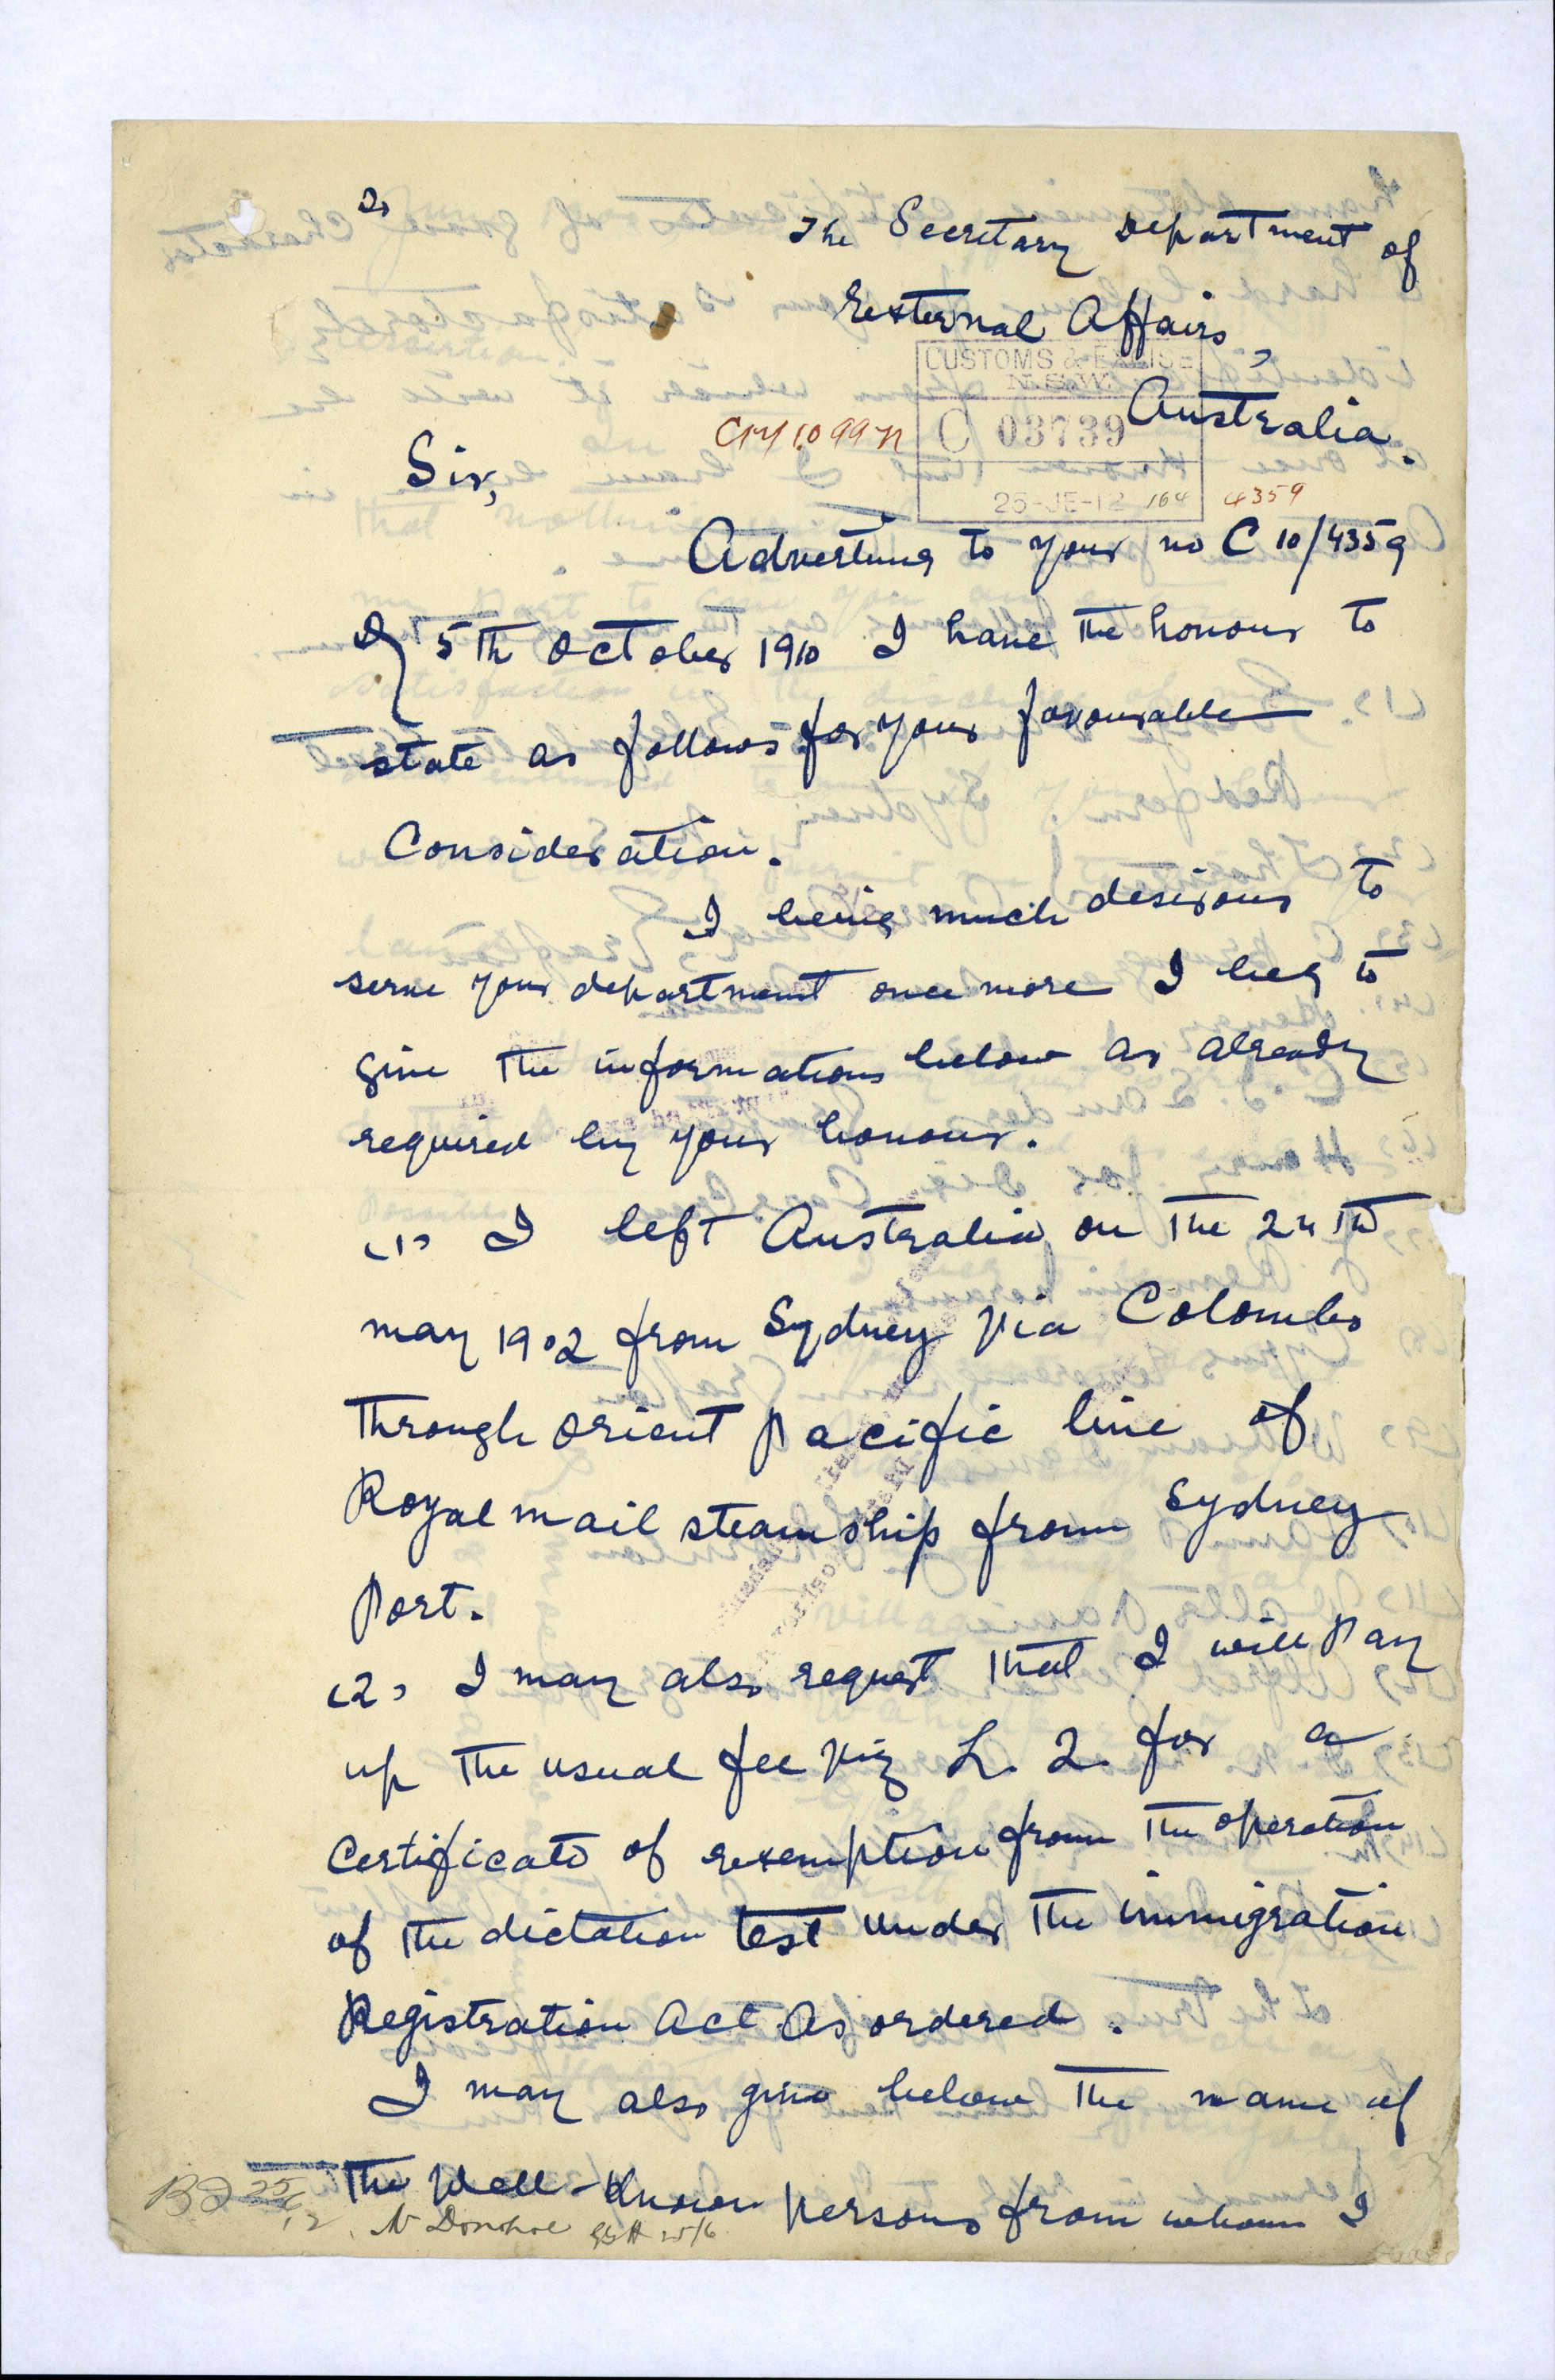 To
The Secretary Department of
External Affairs,
Australia.
CUSTOMS & EXCISE
N.S.W.
C 03739
25-JE-12 164 4359
Sir,
Adverting to your no C 10/4359
of 5th October 1910 I have the honour to
state as follows for your favourable
Consideration.
I being much desirous to
serve your department once more I beg to
give the informations below as already
required by your honour.
(1) I left Australia on the 24th
may 1902 from Sydney via Colombo
through orient Pacific line of
Royal mail steamship from Sydney
Port.
(2) I may also request that I will Pay
up the usual fee viz L. 2. for a
Certificate of exemption from the operation
of the dictation test under the immigration
Registration act as ordered.
I may also give below the name of
the Well-Known persons from whom I
N Donohoe 25/6